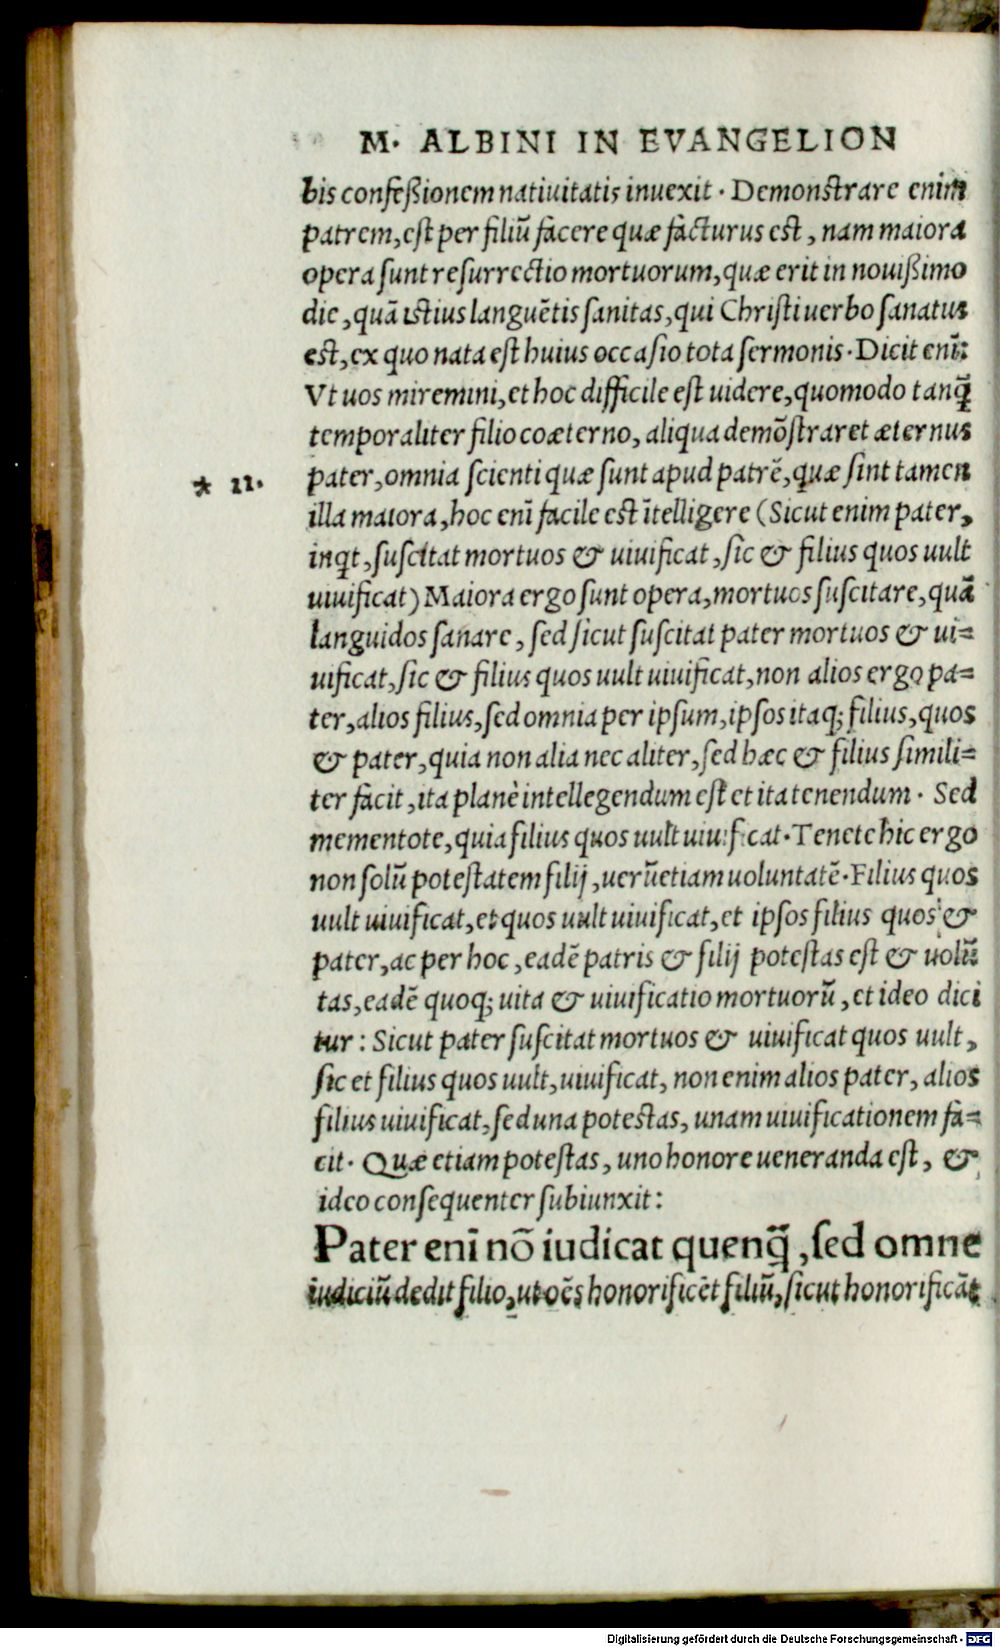 M. ALBINI IN EVANGELION
bis confeſſionem natiuitatis inuexit. Demonſtrare enim
patrem, eſt per filiū facere quæ facturus eſt, nam maiora
opera ſunt reſurrectio mortuorum, quæ erit in nouiſſimo
die, quā iſtius languētis ſanitas, qui Chriſti uerbo ſanatus
eſt, ex quo nata eſt huius occaſio tota ſermonis. Dicit enī:
Vt uos miremini, et hoc difficile eſt uidere, quomodo tanq̄
temporaliter filio coæterno, aliqua demōſtraret æternus
pater, omnia ſcienti quæ ſunt apud patrē, quæ ſint tamen
* 11.
illa maiora, hoc enī facile eſt ītelligere (Sicut enim pater,
inqt, ſuſcitat mortuos & uiuificat, ſic & filius quos uult
uiuificat) Maiora ergo ſunt opera, mortuos ſuſcitare, quā
languidos ſanare, ſed ſicut ſuſcitat pater mortuos & ui=
uificat, ſic & filius quos uult uiuificat, non alios ergo pa=
ter, alios filius, ſed omnia per ipſum, ipſos itaq; filius, quos
& pater, quia non alia nec aliter, ſed hæc & filius ſimili=
ter facit, ita planè intellegendum eſt et ita tenendum. Sed
mementote, quia filius quos uult uiuificat. Tenete hic ergo
non ſolū poteſtatem filij, uerūetiam uoluntatē. Filius quos
uult uiuificat, et quos uult uiuificat, et ipſos filius quos &
pater, ac per hoc, eadē patris & filij poteſtas eſt & uolū
tas, eadē quoq; uita & uiuificatio mortuorū, et ideo dici
tur: Sicut pater ſuſcitat mortuos & uiuificat quos uult,
ſic et filius quos uult, uiuificat, non enim alios pater, alios
filius uiuificat, ſed una poteſtas, unam uiuificationem fa=
cit. Quæ etiam poteſtas, uno honore ueneranda eſt, &
ideo conſequenter ſubiunxit:
Pater enī nō iudicat quenq̄, ſed omne
iudiciū dedit filio, ut oēs honorificēt filiū, ſicut honorificāt
Digitalisierung gefördert durch die Deutsche Forschungsgemeinschaft - DFG